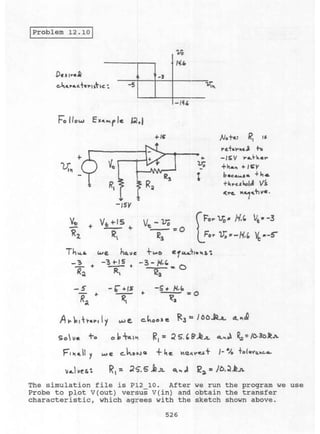 Problem 12.10
Desired
characteristic:
v₀
14.6
-3
-5
Vin
-14.6
Follow Example 12.1
+15
Vin
+
-
Vt
-
+
+
v₀
-
R₁
R₂
R₃
-15V
Note: R₁ is
returned to
-15V rather
than +15V
because the
threshold Vs
are negative.
Vt/R₂ + (Vt+15)/R₁ + (Vt-v₀)/R₃
For v₀ = 14.6 Vt = -3
For v₀ = -14.6 Vt = -5
Thus we have two equations:
-3/R₂ + (-3+15)/R₁ + (-3-14.6)/R₃ = 0
-5/R₂ + (-5+15)/R₁ + (-5+14.6)/R₃ = 0
Arbitrarily we choose R₃ = 100kΩ and
solve to obtain R₁ = 25.68kΩ and R₂ = 10.30kΩ
Finally we choose the nearest 1-% tolerance
values: R₁ = 25.5kΩ and R₂ = 10.2kΩ
The simulation file is P12_10. After we run the program we use
Probe to plot V(out) versus V(in) and obtain the transfer
characteristic, which agrees with the sketch shown above.
526